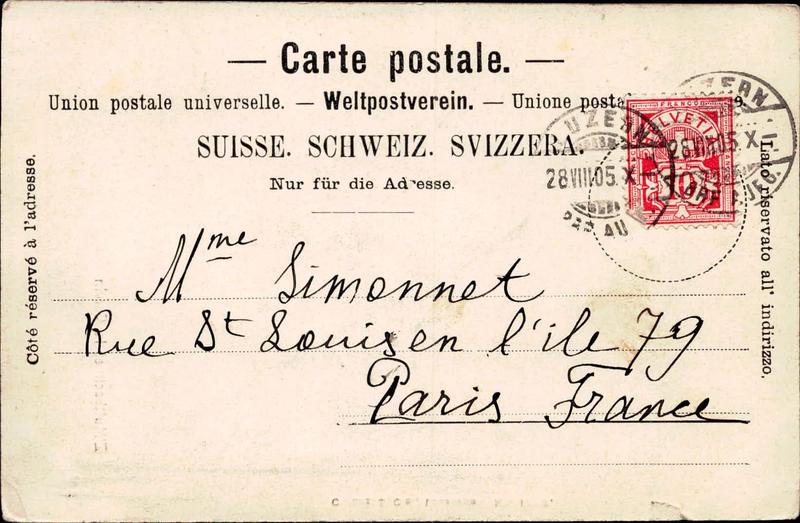 — Carte postale. —
Union postale universelle. — Weltpostverein. — Unione posta
SUISSE. SCHWEIZ. SVIZZERA.
Nur für die Adresse.
Côté réservé à l'adresse.
Lato riservato all' indirizzo.
FRANCO
HELVETIA
10
LUZERN
28.VIII.05.X
LUZERN
28.VIII.05.X
Mme Simonnet
Rue St Louis en l'ile 79
Paris France